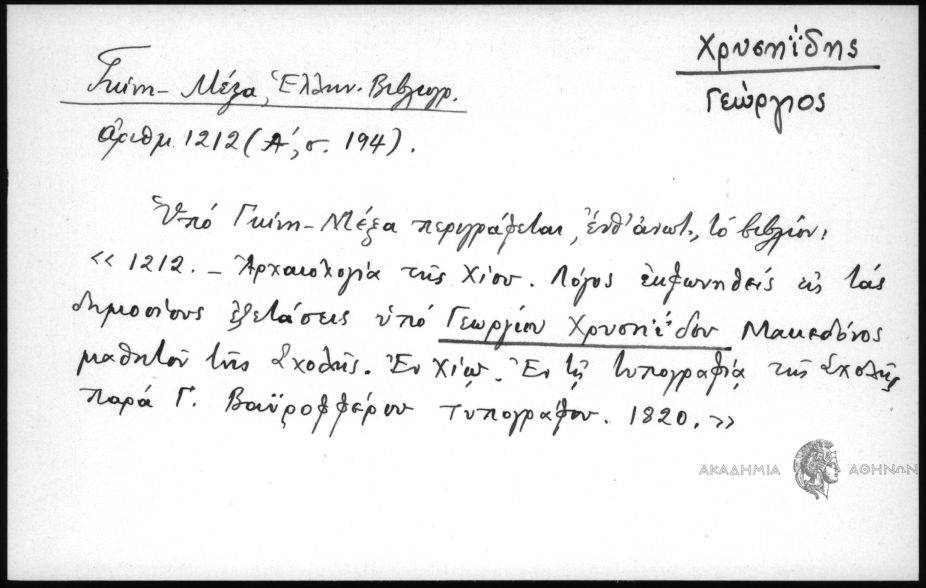 Χρυσηΐδης
Γεώργιος
Γκίνη - Μέξα, Ἑλλην. Βιβλιογρ.
ἀριθμ. 1212 (Α΄, σ. 194).
Ὑπό Γκίνη - Μέξα περιγράφεται, ἐνθ' ἀνωτ., τό βιβλίον:
«1212. - Ἀρχαιολογία τῆς Χίου. Λόγος ἐκφωνηθείς εἰς τάς
δημοσίους ἐξετάσεις ὑπό Γεωργίου Χρυσηΐδου Μακεδόνος
μαθητοῦ τῆς Σχολῆς. Ἐν Χίῳ. Ἐν τῇ τυπογραφίᾳ τῆς Σχολῆς
παρά Γ. Βαϋροφφέρου τυπογράφου. 1820.»
ΑΚΑΔΗΜΙΑ ΑΘΗΝΩΝ